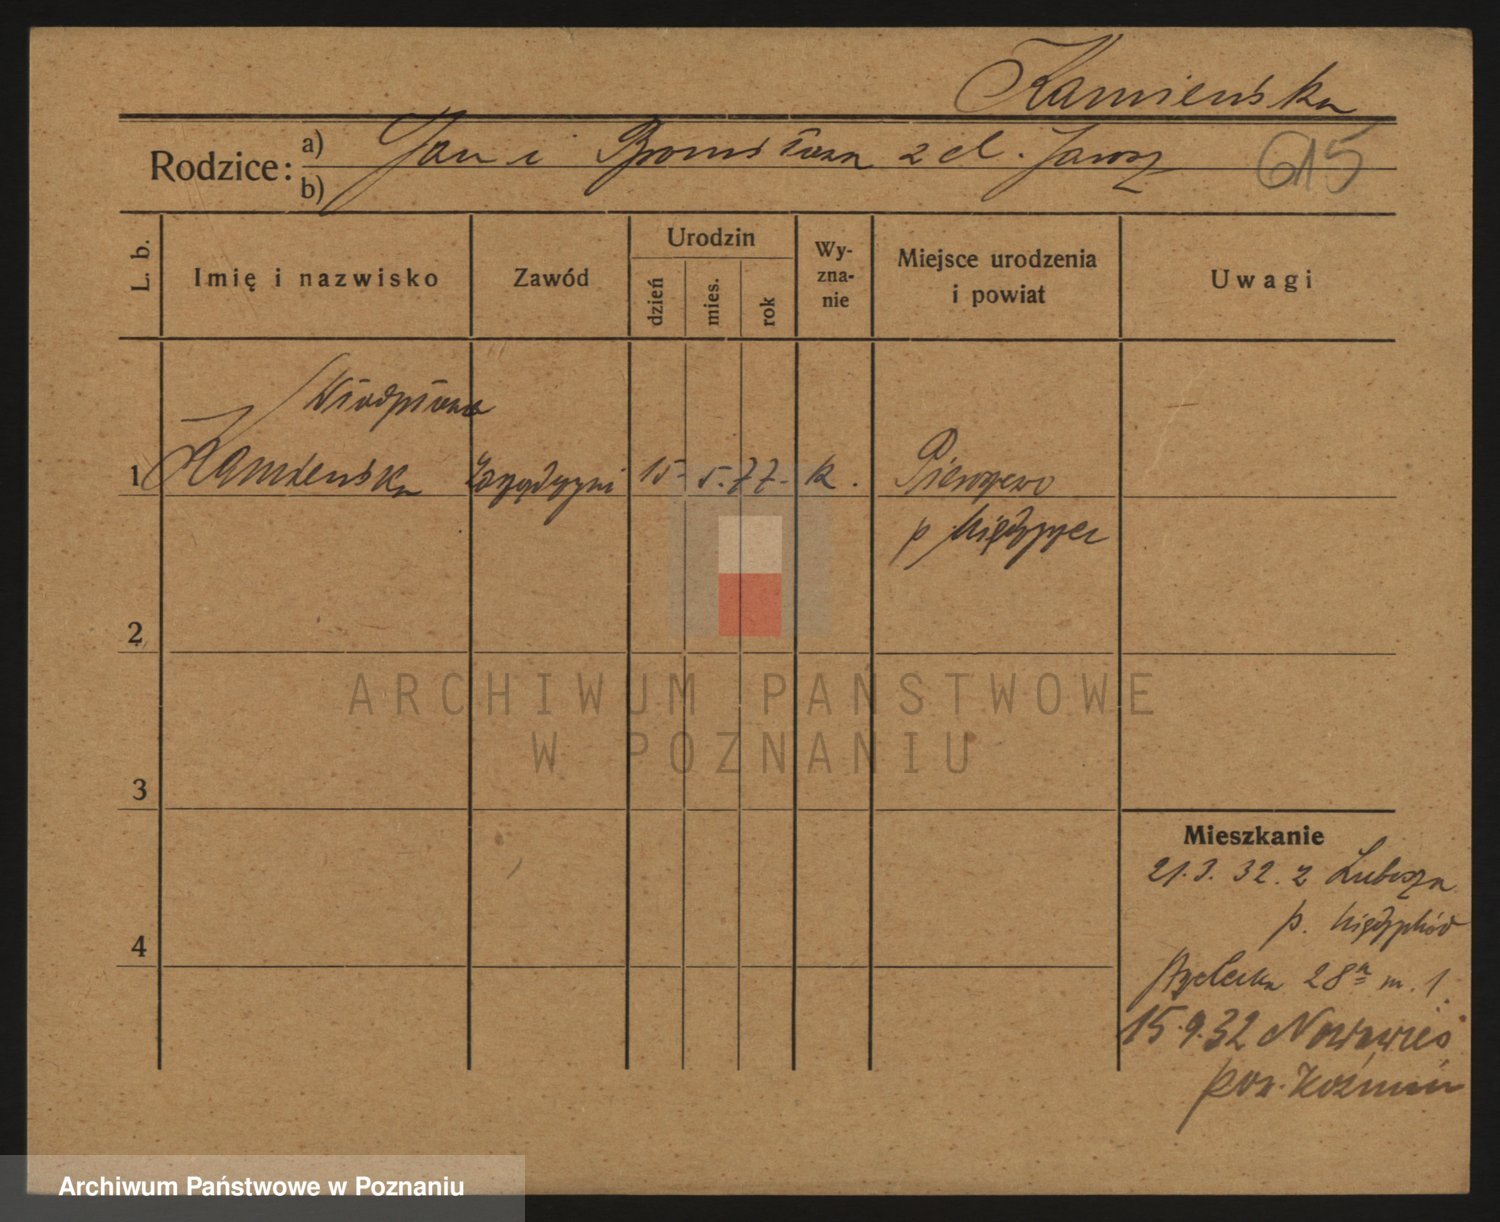 Kamieńska
Rodzice:
a) Jan i Bronisława z d. Jarosz
b)
615
L. b.
Imię i nazwisko
Zawód
Urodzin
dzień
mies.
rok
Wy-
zna-
nie
Miejsce urodzenia
i powiat
Uwagi
1 Kamieńska 15. 5. 77. k. Pierzewo
p
2
3
4
ARCHIWUM PAŃSTWOWE
W POZNANIU
Mieszkanie
21.3.32. z Lubosza
p. Międzychód
28a m. 1.
15.9.32 Nowawieś
pow. Koźmin
Archiwum Państwowe w Poznaniu